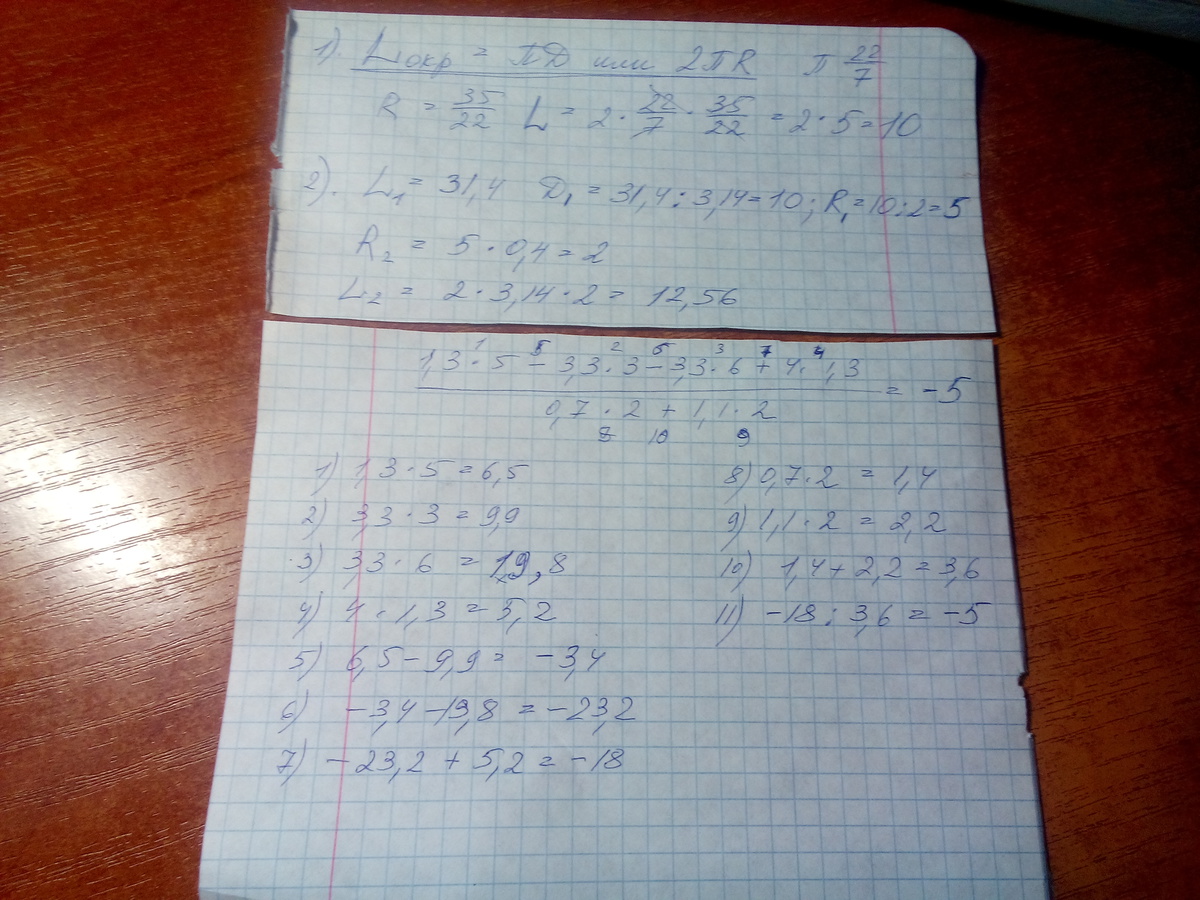 1). Lокр = πД или 2πR π 22/7
R = 35/22 L = 2 · 22/7 · 35/22 = 2 · 5 = 10
2). L₁ = 31,4 Д₁ = 31,4 : 3,14 = 10; R₁ = 10 : 2 = 5
R₂ = 5 · 0,4 = 2
L₂ = 2 · 3,14 · 2 = 12,56
1 5 2 6 3 7 4
1,3 · 5 − 3,3 · 3 − 3,3 · 6 + 4 · 1,3
= −5
0,7 · 2 + 1,1 · 2
8 10 9
1) 1,3 · 5 = 6,5
2) 3,3 · 3 = 9,9
3) 3,3 · 6 = 19,8
4) 4 · 1,3 = 5,2
5) 6,5 − 9,9 = −3,4
6) −3,4 − 19,8 = −23,2
7) −23,2 + 5,2 = −18
8) 0,7 · 2 = 1,4
9) 1,1 · 2 = 2,2
10) 1,4 + 2,2 = 3,6
11) −18 : 3,6 = −5